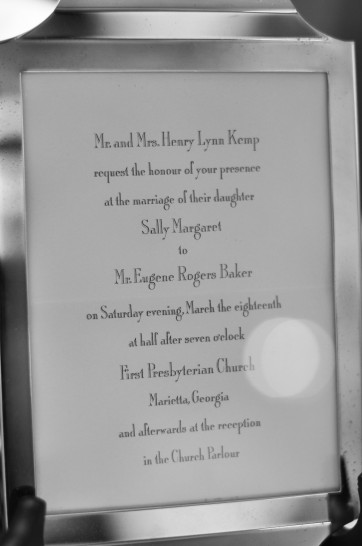 Mr. and Mrs. Henry Lynn Kemp
request the honour of your presence
at the marriage of their daughter
Sally Margaret
to
Mr. Eugene Rogers Baker
on Saturday evening, March the eighteenth
at half after seven o'clock
First Presbyterian Church
Marietta, Georgia
and afterwards at the reception
in the Church Parlour